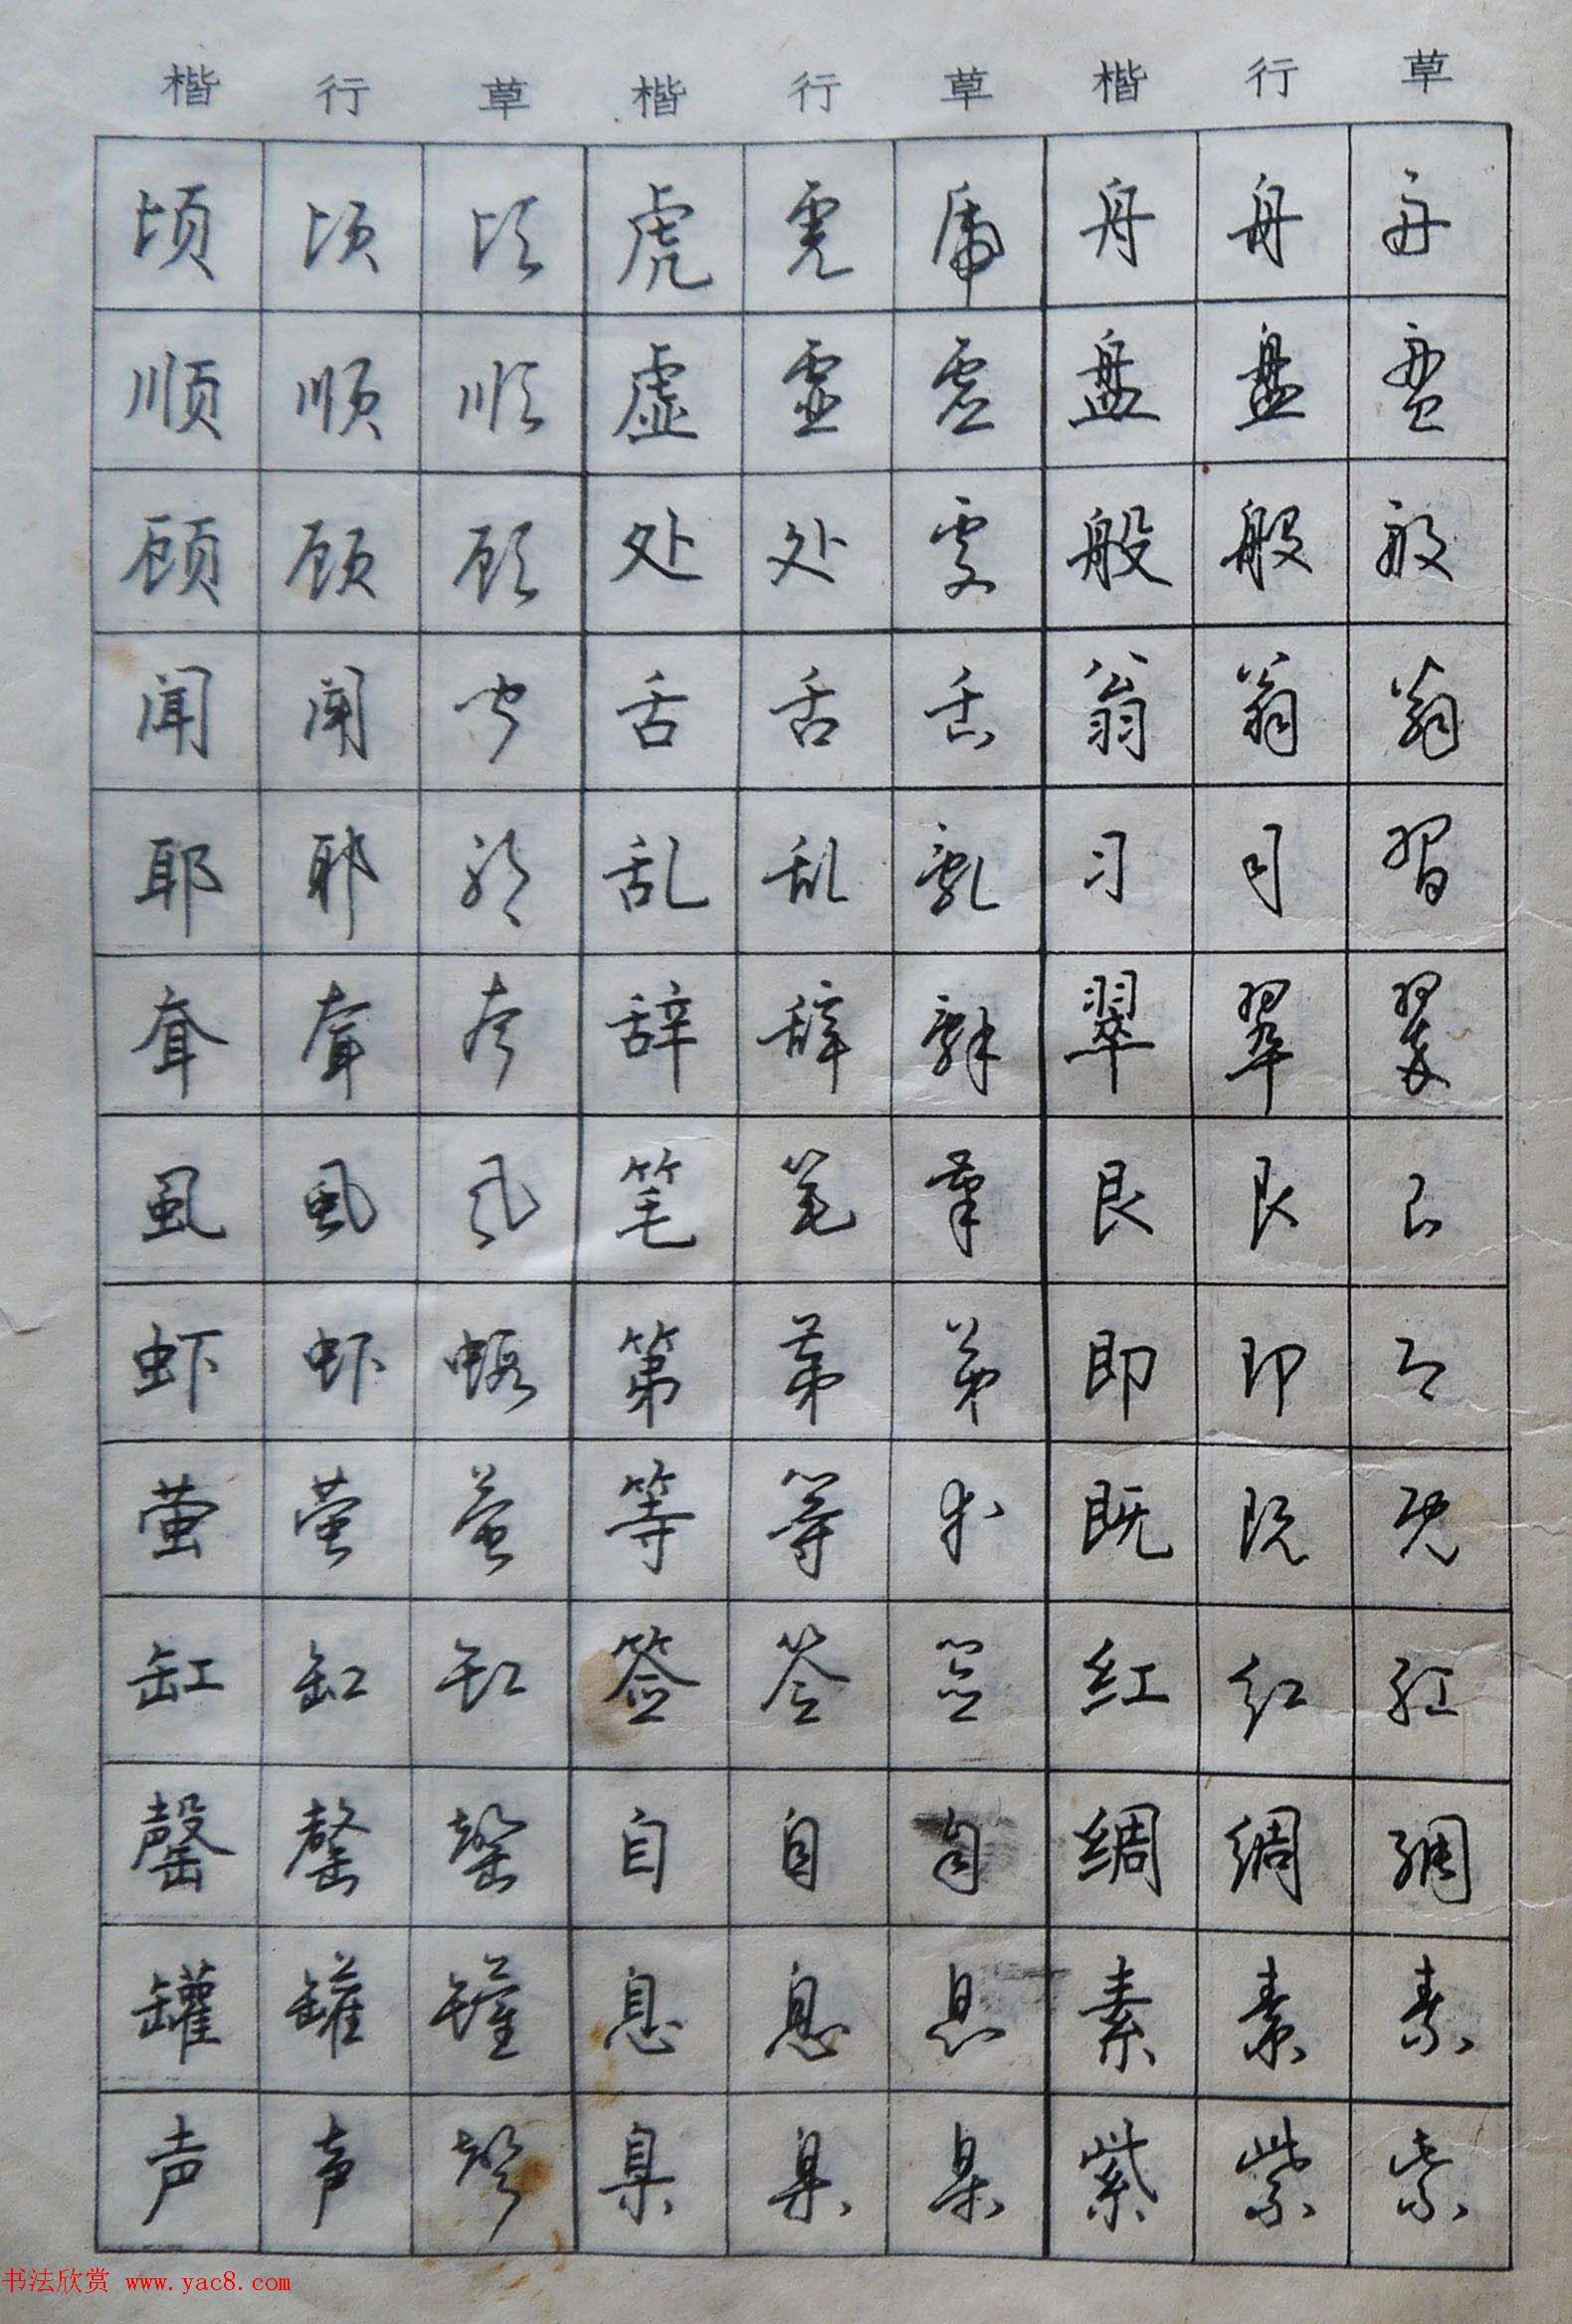 楷 行 草 楷 行 草 楷 行 草
顷 顷 顷 虎 虎 虎 舟 舟 舟
顺 顺 顺 虚 虚 虚 盘 盘 盘
顾 顾 顾 处 处 處 般 般 般
闻 闻 闻 舌 舌 舌 翁 翁 翁
耶 耶 耶 乱 乱 亂 习 习 習
耷 耷 耷 辞 辞 辭 翠 翠 翠
虱 虱 虱 笔 笔 筆 艮 艮 艮
虾 虾 蝦 第 第 第 即 即 即
萤 萤 萤 等 等 等 既 既 既
缸 缸 缸 签 签 签 红 红 红
罄 罄 罄 自 自 自 绸 绸 绸
罐 罐 罐 息 息 息 素 素 素
声 声 聲 臬 臬 臬 紫 紫 紫
书法欣赏 www.yac8.com